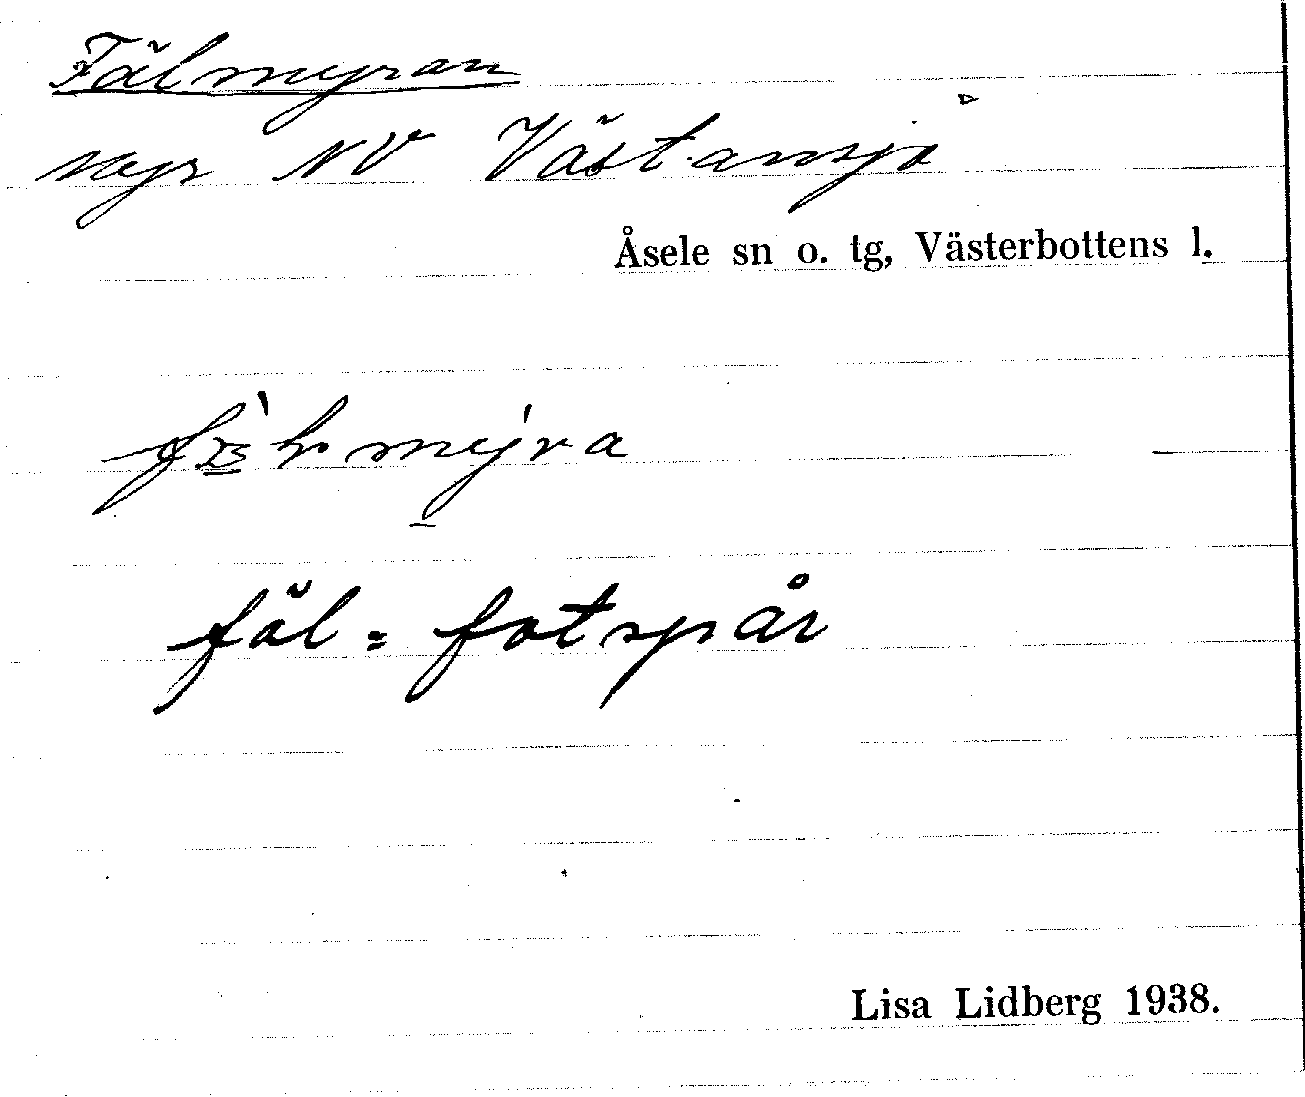 Fälmyran
myr NV Västansjö
Åsele sn o. tg, Västerbottens l.
fäl = fotspår
Lisa Lidberg 1938.